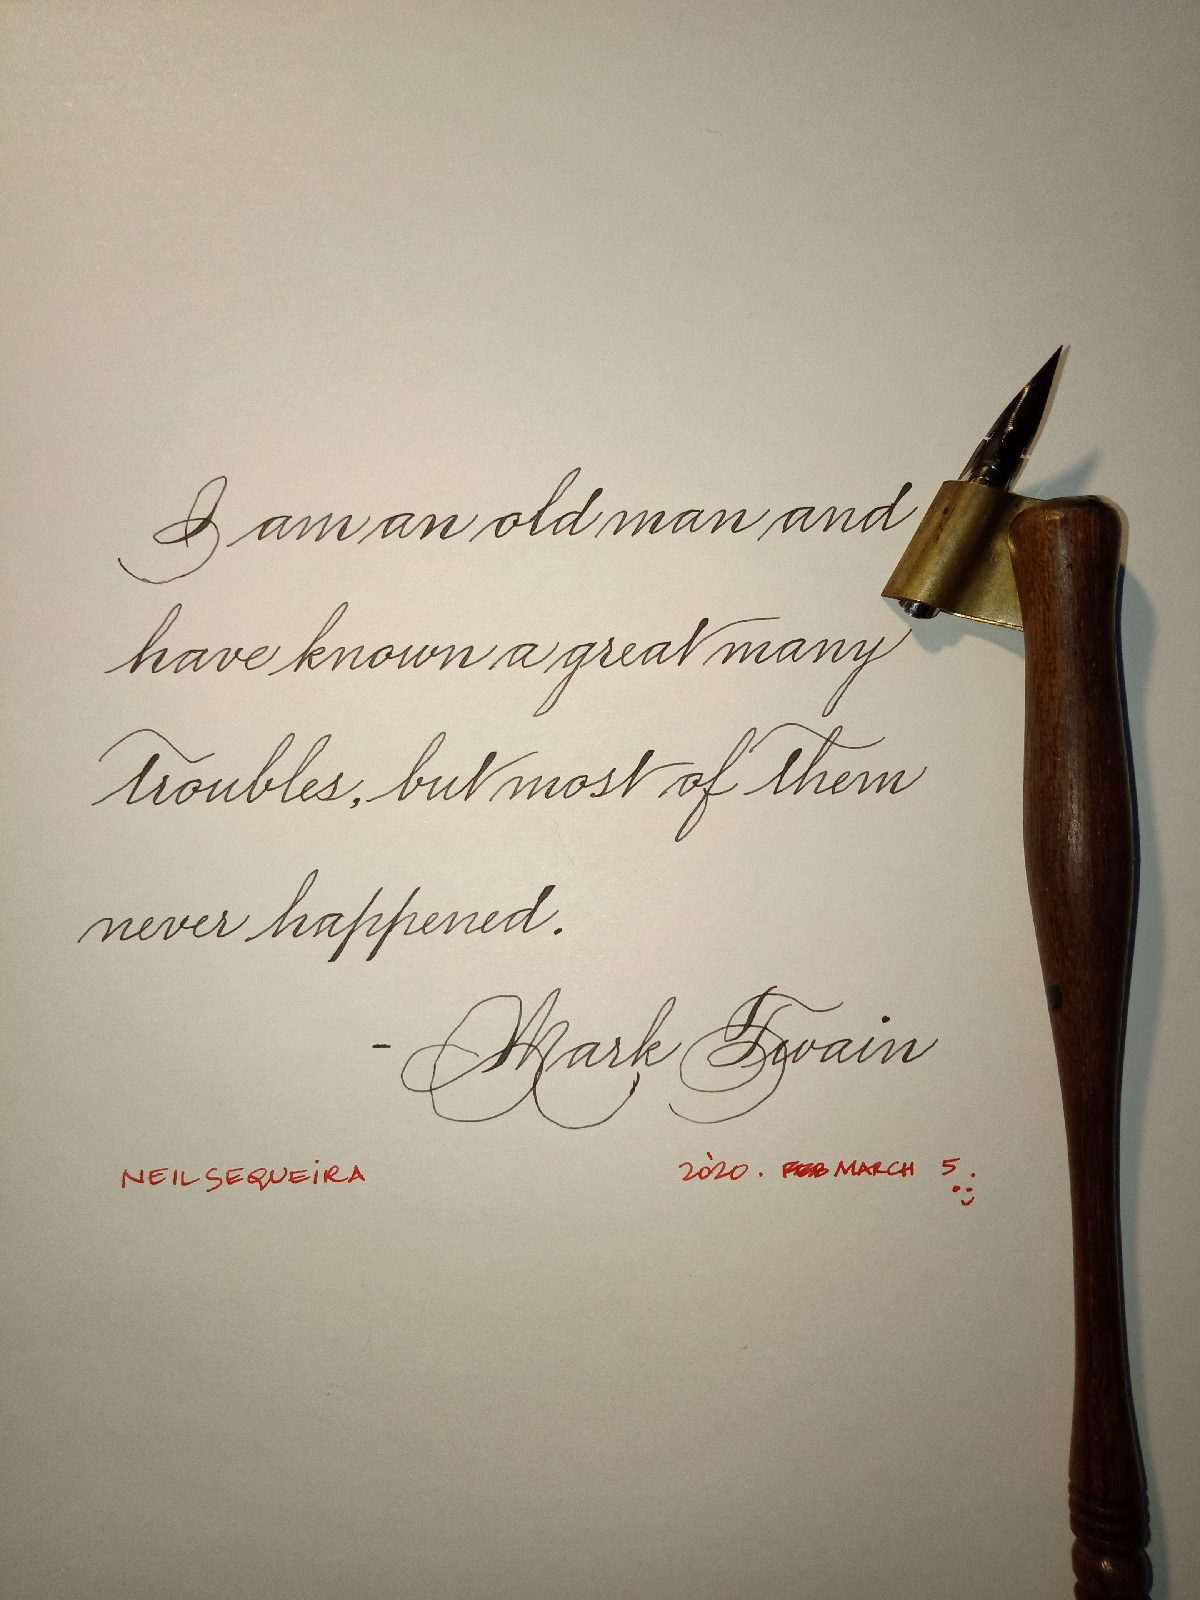 I am an old man and
have known a great many
troubles, but most of them
never happened.
- Mark Twain
NEIL SEQUEIRA
2020. FEB MARCH 5.